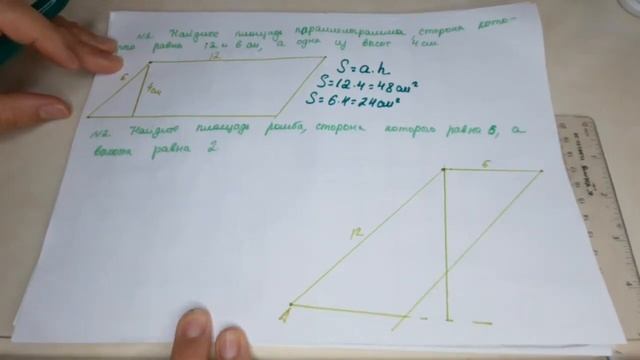 №1. Найдите площадь параллелограмма, сторона кото-
рого равна 12 и 6 см, а одна из высот 4 см.
12
6
4см
S=a.h
S=12.4=48см²
S=6.4=24см²
№2. Найдите площадь ромба, сторона которого равна 8, а
высота равна 2
6
12
A